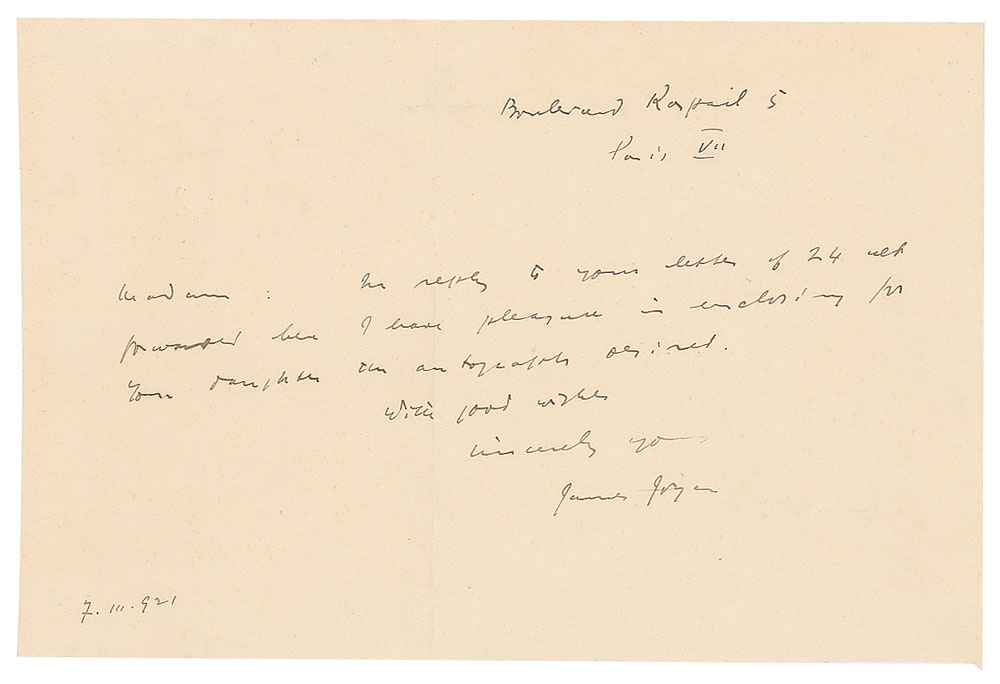 Boulevard Raspail 5
Paris VII
Madam : In reply to your letter of 24 ult
forwarded here I have pleasure in enclosing for
your daughter the autograph desired.
With good wishes
sincerely yours
James Joyce
7. III. 921